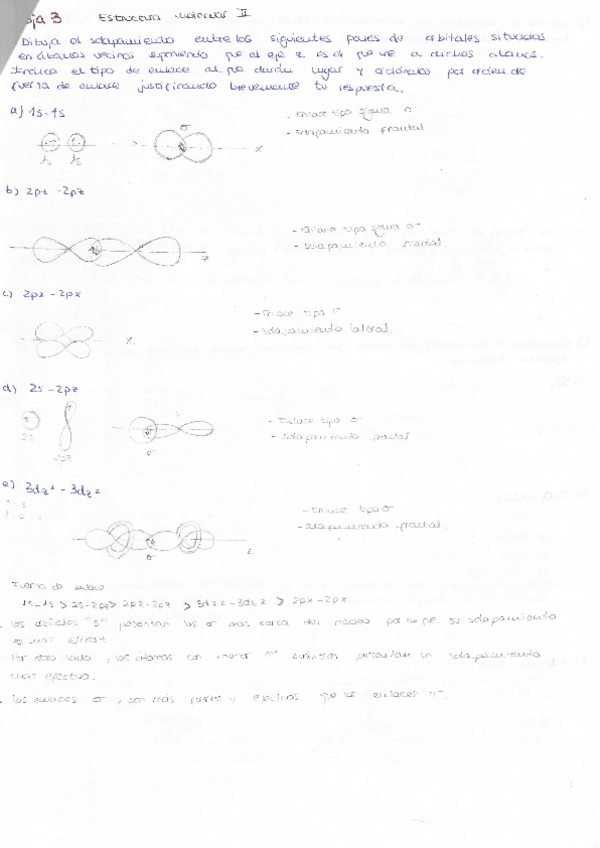 oja 3 Estructura molecular II
Dibuja el solapamiento entre los siguientes pares de orbitales situados
en átomos vecinos suponiendo que el eje z es el que une a dichos átomos.
Indica el tipo de enlace al que darán lugar y ordénalos por orden de
fuerza de enlace justificando brevemente tu respuesta.
a) 1s-1s
- Enlace tipo sigma σ
- Solapamiento frontal
σ
x
b) 2pz - 2pz
- Enlace tipo sigma σ
- Solapamiento frontal
z
c) 2px - 2px
- Enlace tipo
- Solapamiento lateral
x
d) 2s - 2pz
- Enlace tipo σ
- Solapamiento frontal
2s
2pz
σ
e) 3dz² - 3dz²
- Enlace tipo σ
- Solapamiento frontal
σ
z
Fuerza de enlace
1s-1s > 2s-2pz > 2pz-2pz > 3dz²-3dz² > 2px-2px
los orbitales "s" presentan los más cerca del núcleo por lo que su solapamiento
es más
Por otro lado, los átomos con menor nº cuántico presentan un solapamiento
más efectivo.
los enlaces σ, son más fuertes y efectivos que los enlaces π.